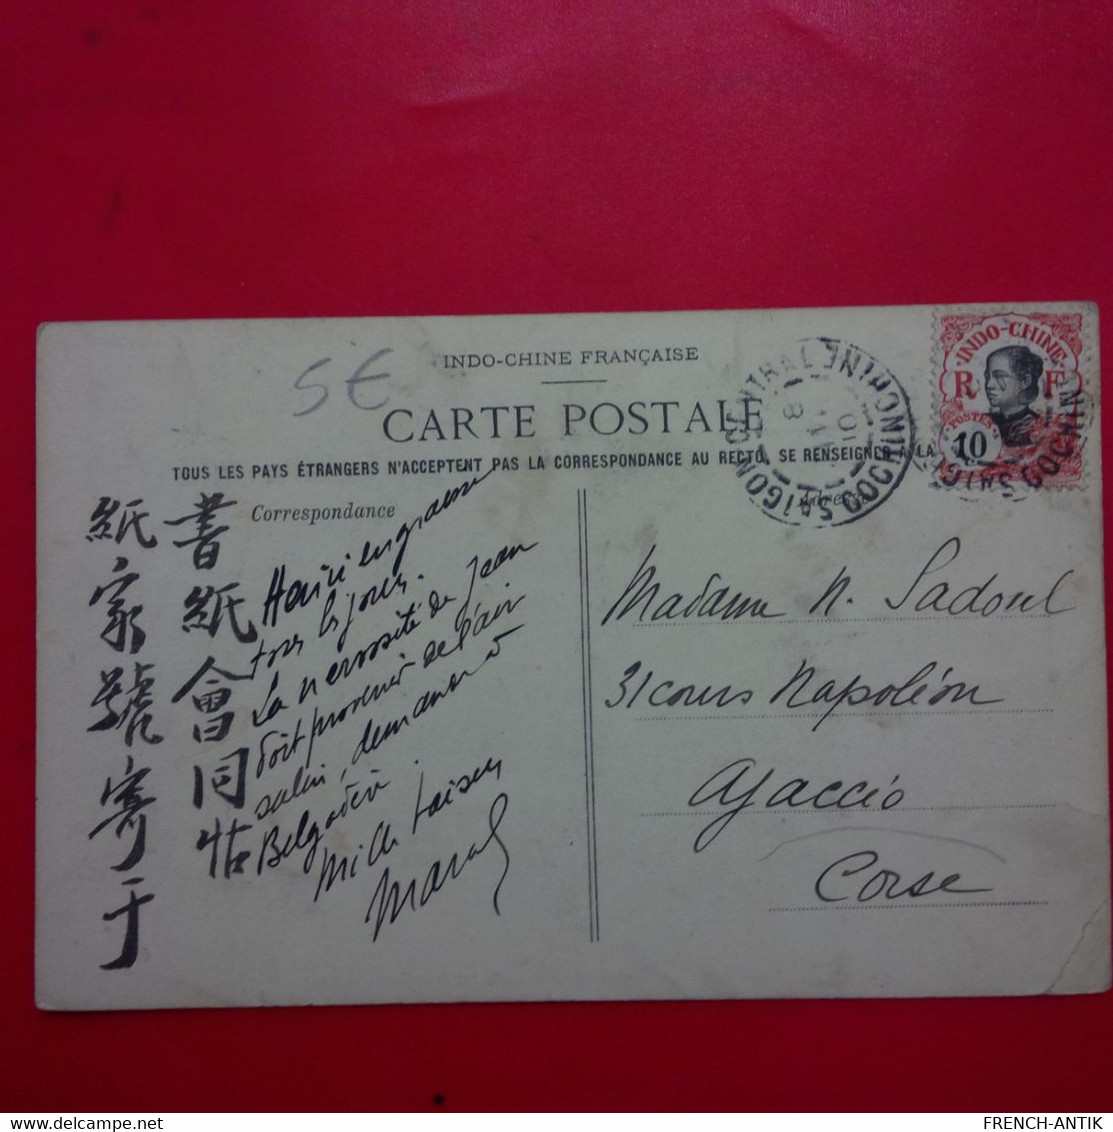 5€
INDO-CHINE FRANÇAISE
CARTE POSTALE
TOUS LES PAYS ÉTRANGERS N'ACCEPTENT PAS LA CORRESPONDANCE AU RECTO, SE RENSEIGNER A LA
Correspondance
Adresse
INDO-CHINE
R F
POSTES
10
SAIGON CENTRAL COCHINCHINE
SAIGON COCHINCHINE
書紙會同帖
紙家號寄于
Henri engraisse
tous les jours.
La nervosité de Jean
doit provenir de l'air
salin, demander à
Belgodère
Mille baisers
Marcel
Madame N. Sadoul
31 cours Napoléon
Ajaccio
Corse
FRENCH-ANTIK